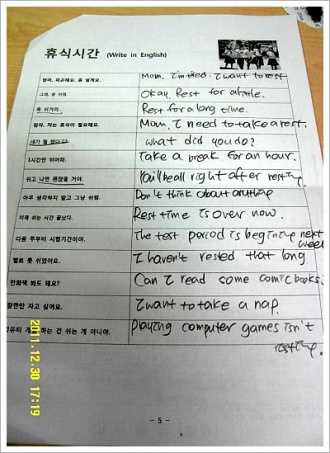 휴식시간 (Write in English)
엄마, 피곤해요. 좀 쉴게요. Mom, I'm tired. I want to rest
그래, 좀 쉬렴. Okay. Rest for a little.
푹 쉬거라. Rest for a long time.
엄마, 저는 휴식이 필요해요. Mom, I need to take a rest.
네가 뭘 했다고? what did you do?
1시간만 쉬어라. Take a break for an hour.
쉬고 나면 괜찮을 거야. You'll be all right after resting.
아무 생각하지 말고 그냥 쉬렴. Don't think about anything
이제 쉬는 시간 끝났다. Rest time is over now.
다음 주부터 시험기간이야. The test period is beginning next
week
별로 못 쉬었어요. I haven't rested that long.
만화책 봐도 돼요? Can I read some comic books.
잠깐만 자고 싶어요. I want to take a nap.
하는 건 쉬는 게 아니야. Playing computer games isn't
resting.
- 5 -
2011.12.30 17:19